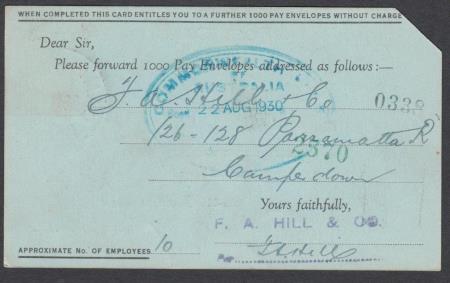 WHEN COMPLETED THIS CARD ENTITLES YOU TO A FURTHER 1000 PAY ENVELOPES WITHOUT CHARGE
Dear Sir,
Please forward 1000 Pay Envelopes addressed as follows:—
22 AUG 1930
F. A. Hill & Co 0338
126-128 Parramatta R
2370
Camperdown
Yours faithfully,
F. A. HILL & CO.
APPROXIMATE NO. OF EMPLOYEES 10
Per FAHill